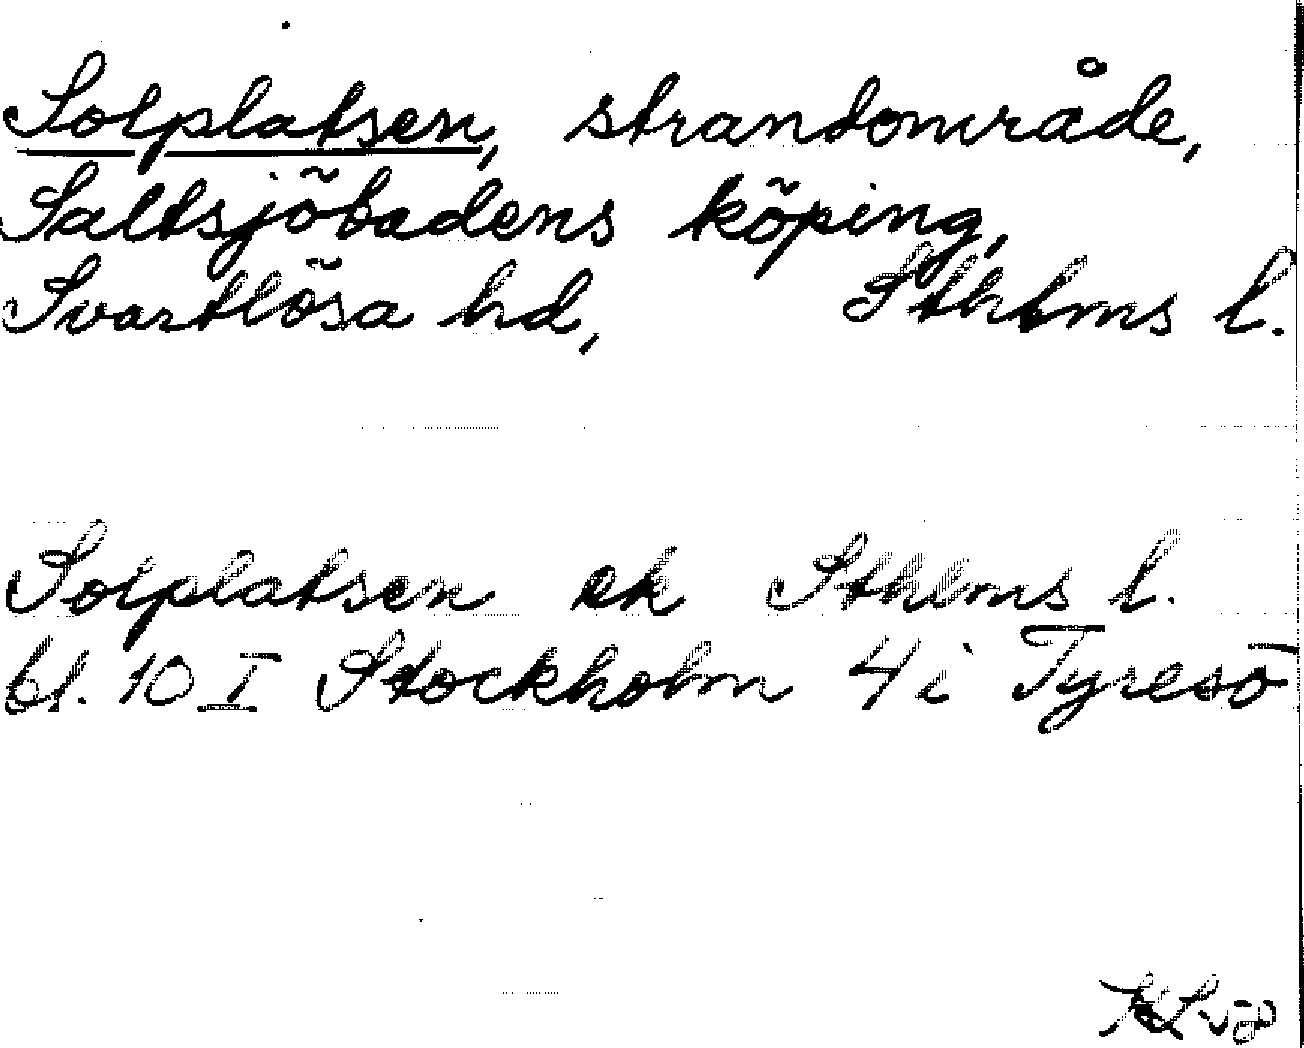 Solplatsen, strandområde,
Saltsjöbadens köping,
Svartlösa hd, Sthlms l.
Solplatsen ek Sthlms l.
bl. 10 I Stockholm 4 i Tyresö